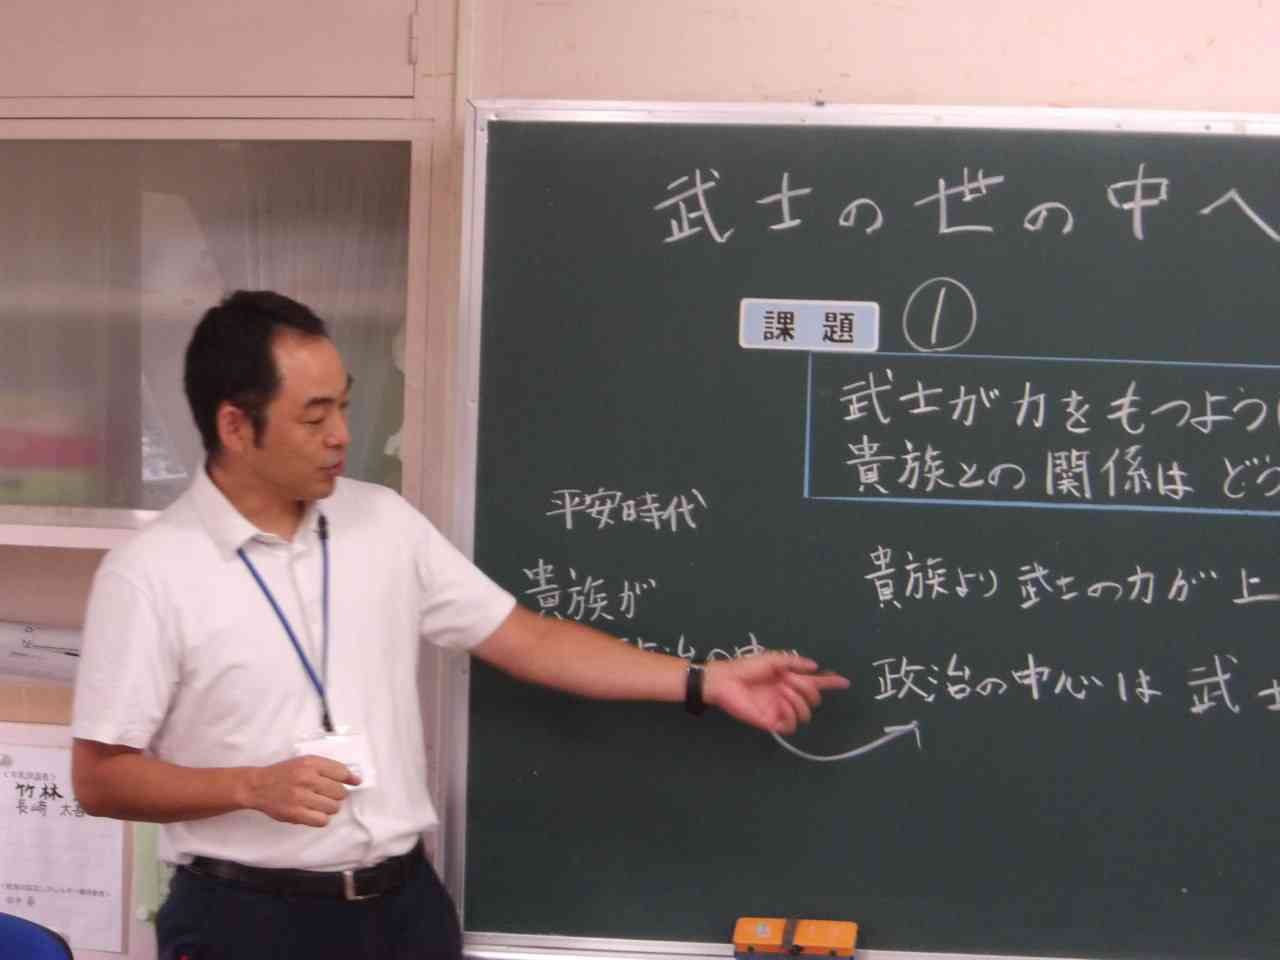 武士の世の中へ
課題 ①
武士が力をもつように
貴族との関係はどう
平安時代
貴族が
政治の中心
貴族より武士の力が上
政治の中心は武士
竹林
長崎 太